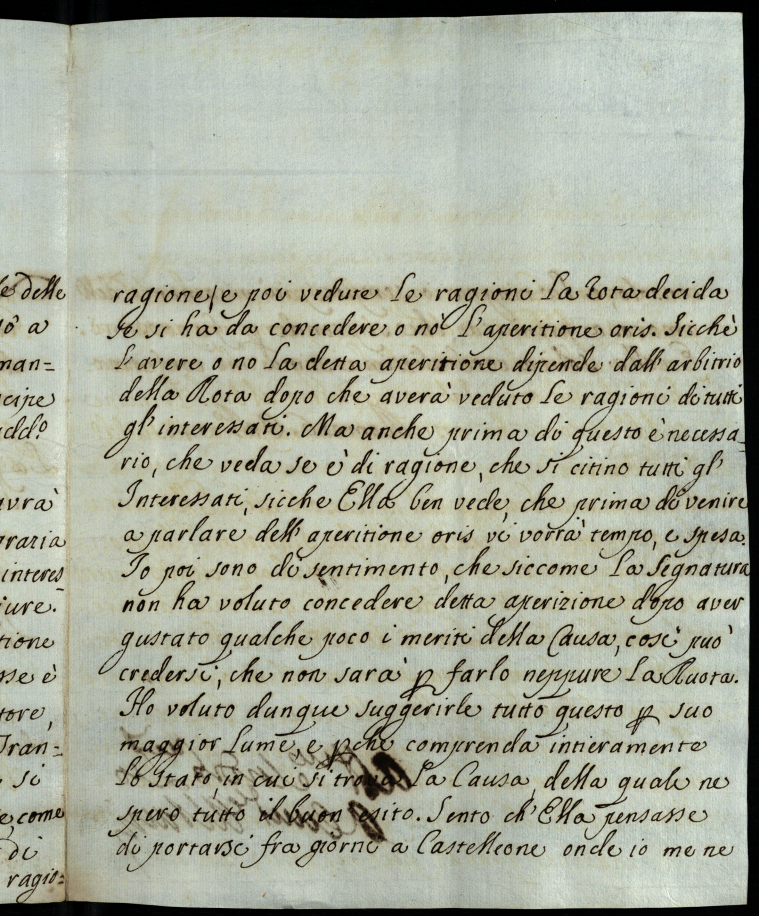 le delle
iò a
man=
cipe
add.o
avrà
grazia
interes
iure.
tione
sse è
tore,
Tran=
si
e come
di
ragio=
ragione/e poi vedute le ragioni la Rota decida
se si ha da concedere o nò l'aperitione oris. Sicchè
l'avere o no la detta aperitione dipende dall'arbitrio
della Rota dopo che averà veduto le ragioni di tutti
gl'interessati. Ma anche prima di questo è necessa=
rio, che veda se è di ragione, che si citino tutti gl'
Interessati, sicche Ella ben vede, che prima di venire
a parlare dell'aperitione oris vi vorrà tempo, e spesa.
Io poi sono di sentimento, che siccome la Segnatura
non ha voluto concedere detta aperizione dopo aver
gustato qualche poco i meriti della Causa, così può
credersi, che non sarà p farlo neppure la Ruota.
Ho voluto dunque suggerirle tutto questo p suo
maggior lume, e pche comprenda intieramente
lo stato, in cui si trova la Causa, della quale ne
spero tutto il buon esito. Sento ch'Ella pensasse
di portarsi fra giorni a Castelleone onde io me ne